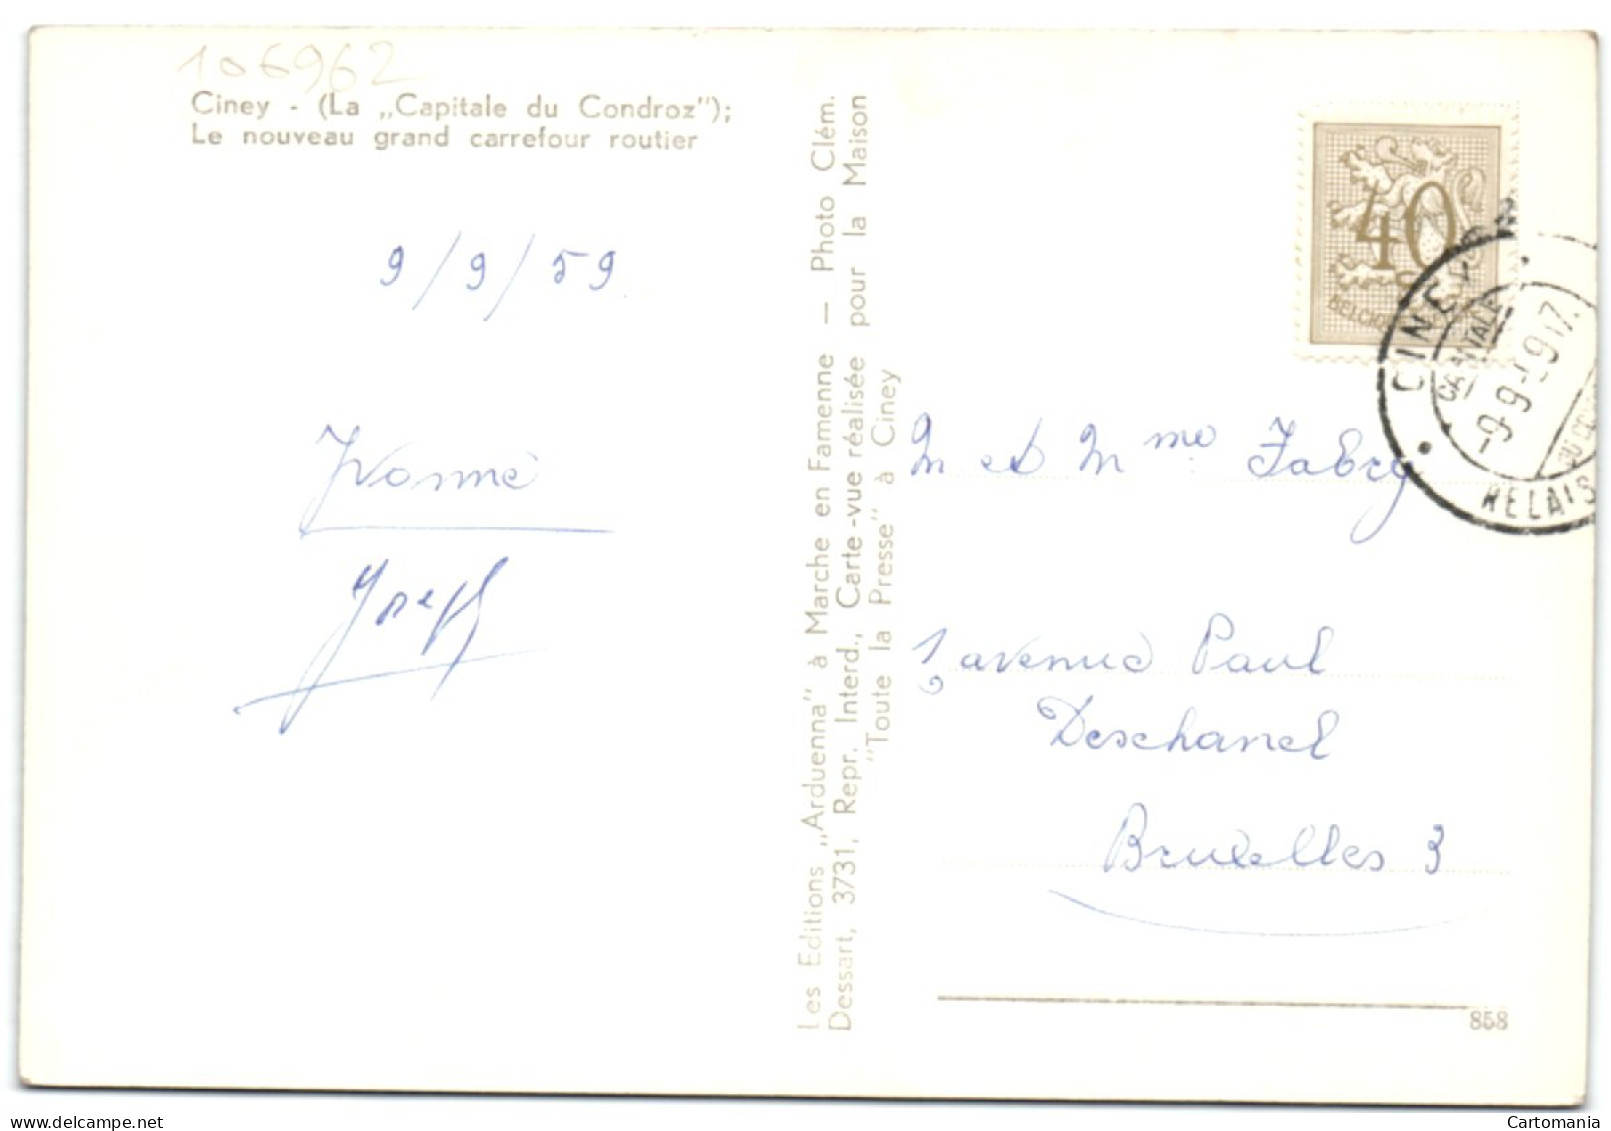 106962
Ciney - (La „Capitale du Condroz");
Le nouveau grand carrefour routier
9/9/59
Yvonne
Joseph
Les Editions „Arduenna" à Marche en Famenne — Photo Clém.
Dessart, 3731, Repr. Interd., Carte-vue réalisée pour la Maison
"Toute la Presse" à Ciney
40
CINEY
CAPITALE
-9-9-59 17
RELAIS
M et Mme Fabry
1, avenue Paul
Deschanel
Bruxelles 3
858
Cartomania